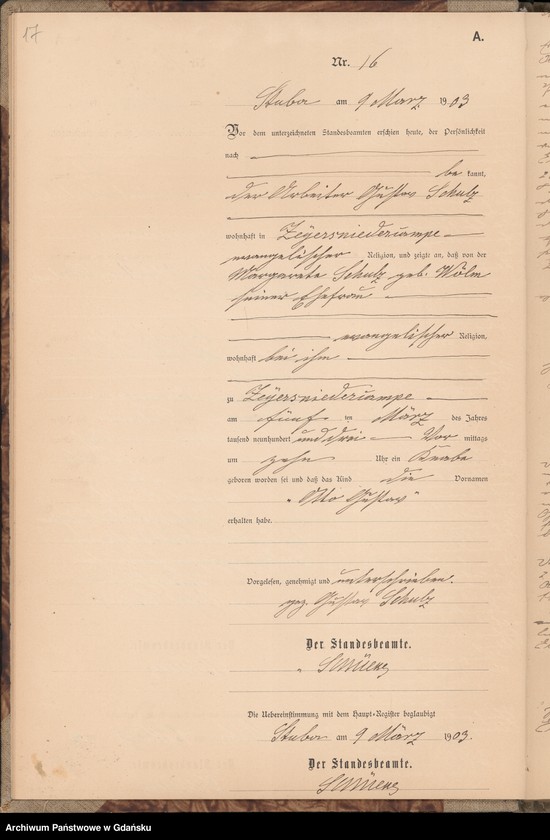 17
A.
Nr. 16
Stuba am 9 März 1903
Vor dem unterzeichneten Standesbeamten erschien heute, der Persönlichkeit
nach
be kannt,
der Arbeiter Gustav Schulz
wohnhaft in Zeyersniedercampe
evangelischer Religion, und zeigte an, daß von der
Margarete Schulz geb. Wölm
seiner Ehefrau
evangelischer Religion,
wohnhaft bei ihm
zu Zeyersniedercampe
am fünf ten März des Jahres
tausend neunhundert und drei Vor mittags
um zehn Uhr ein Knabe
geboren worden sei und daß das Kind die Vornamen
„Otto Gustav"
erhalten habe.
Vorgelesen, genehmigt und unterschrieben.
gez. Gustav Schulz
Der Standesbeamte.
Die Uebereinstimmung mit dem Haupt-Register beglaubigt
Stuba am 9 März 1903.
Der Standesbeamte.
Archiwum Państwowe w Gdańsku